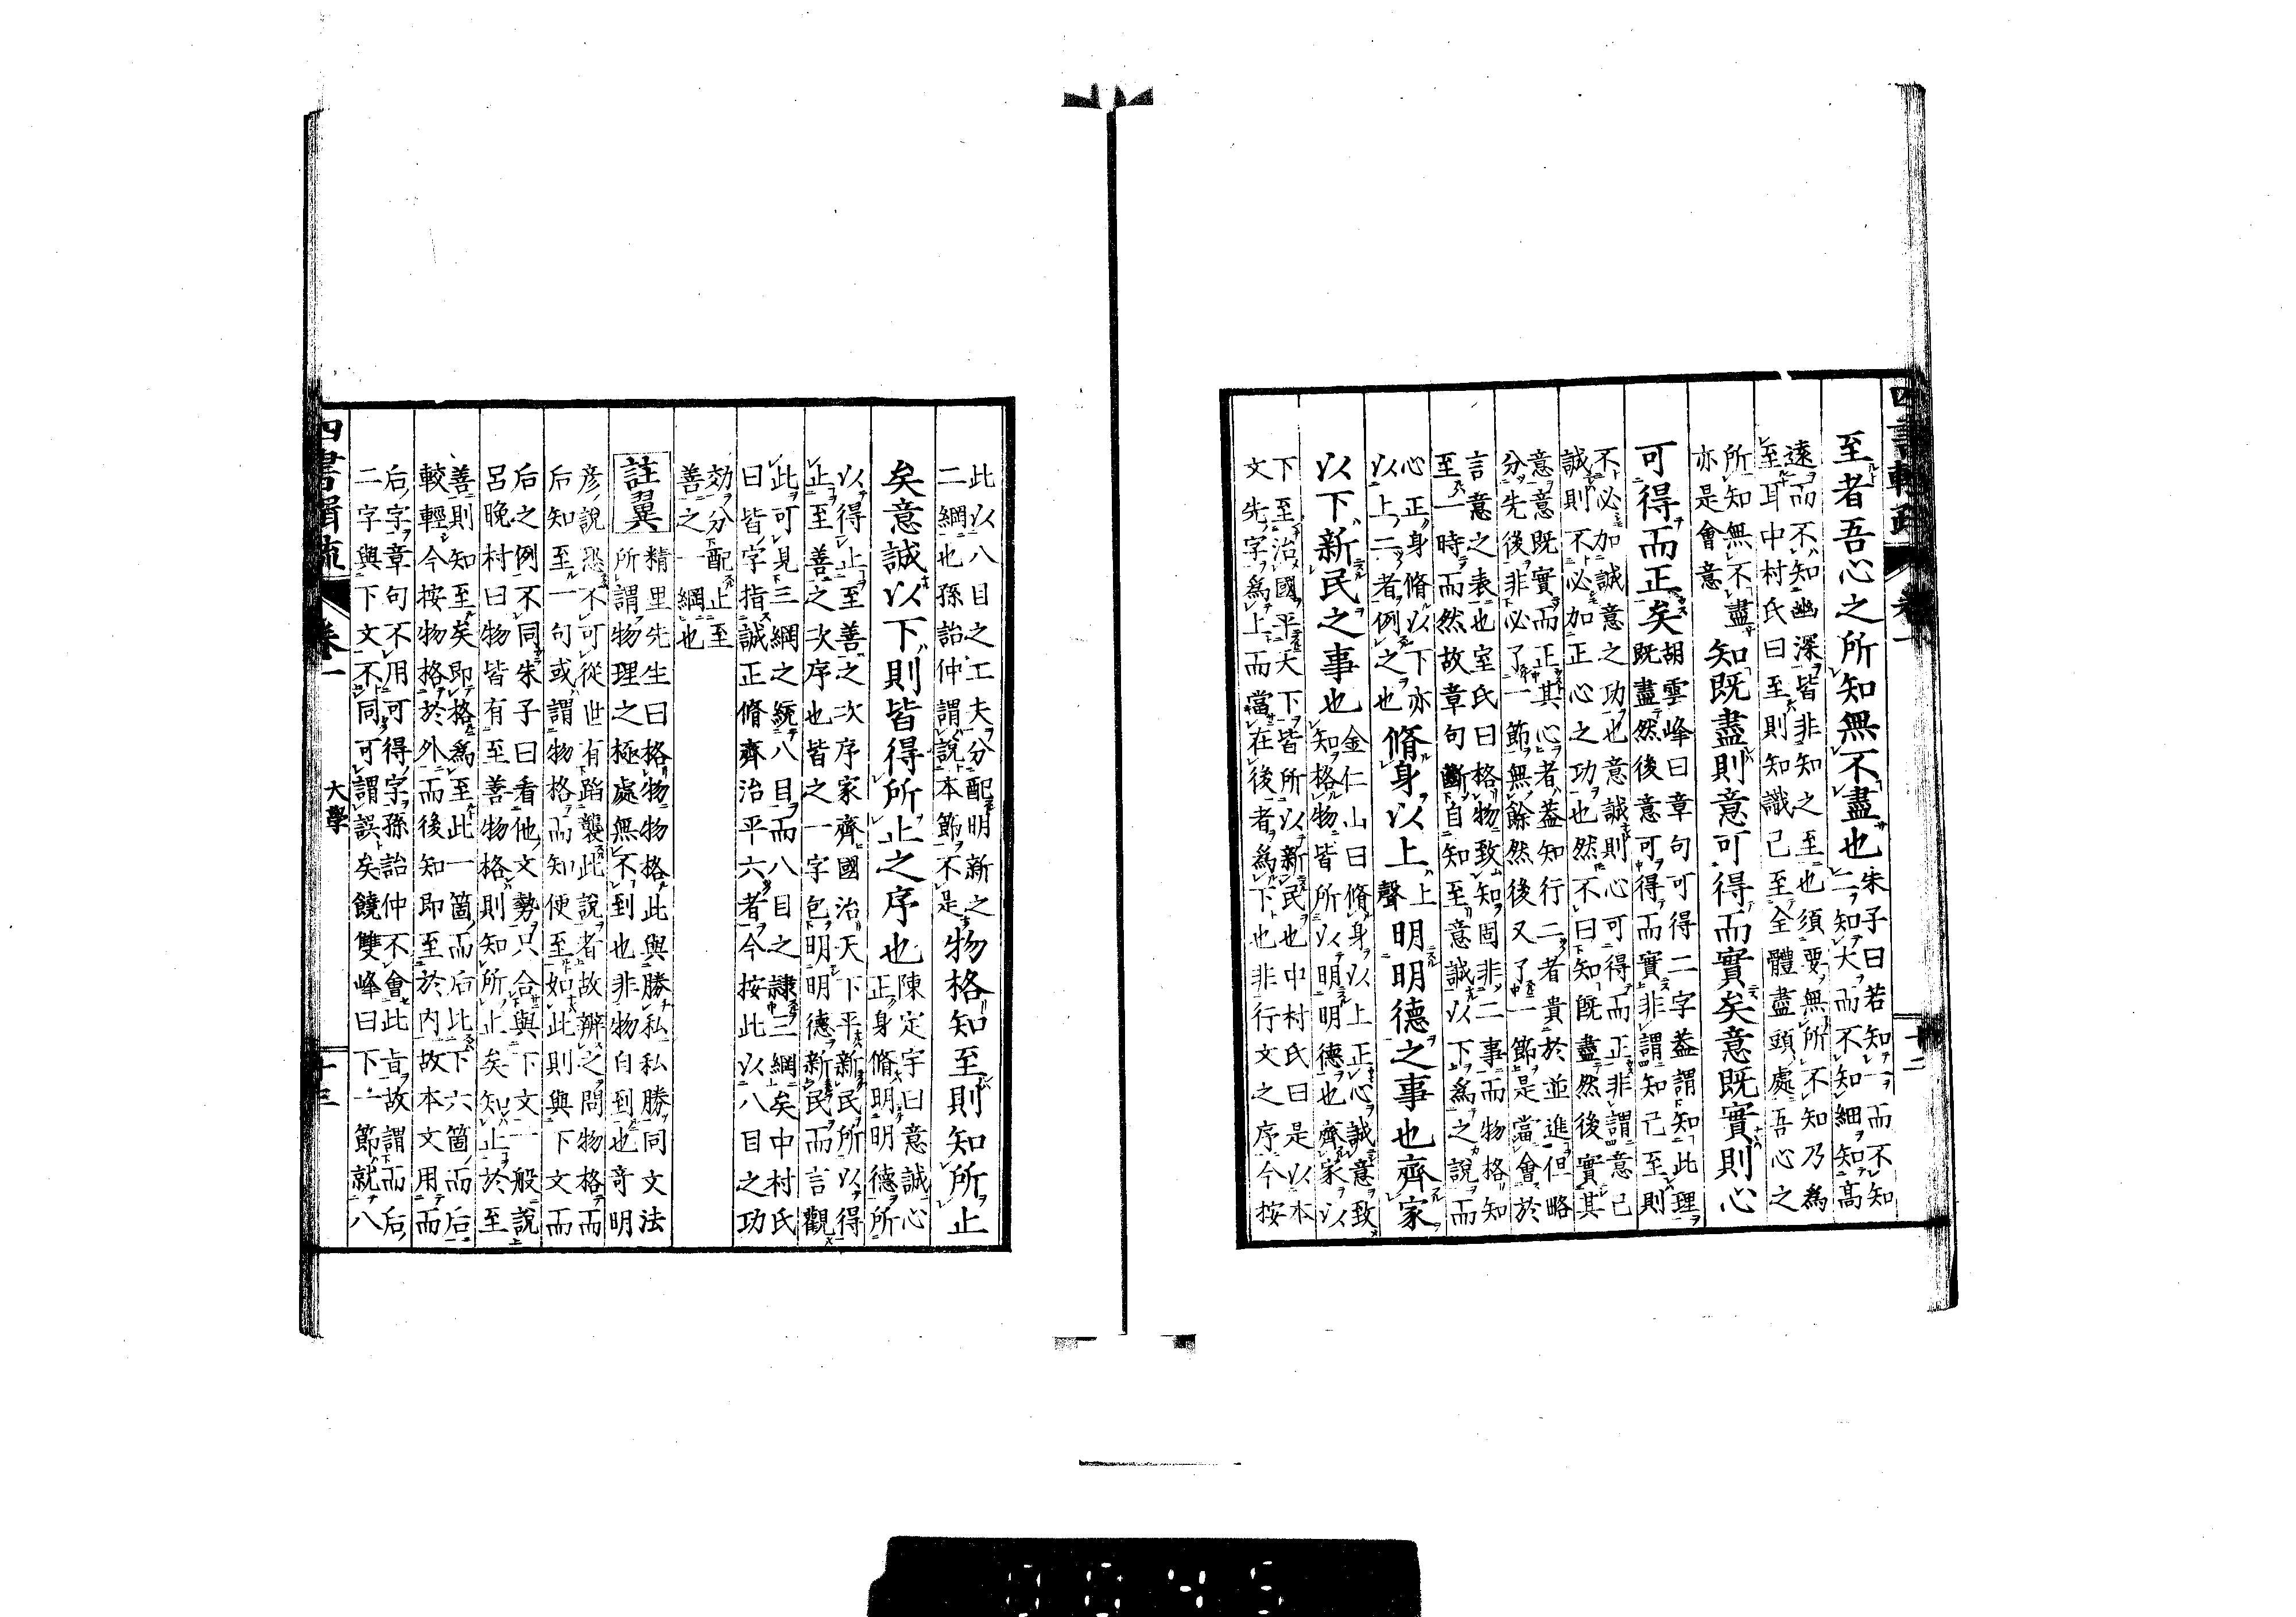 四書輯疏 卷一 十二
至者吾心之所知無不盡也
朱子曰若知一而不知
二知大而不知細知高
遠而不知幽深皆非知之至也須要無所不知乃爲
至耳中村氏曰至則知識已至全體盡頭處吾心之
所知無不盡
亦是會意
知既盡則意可得而實矣意既實則心
可得而正矣
胡雲峰曰章句可得二字蓋謂知此理
既盡然後意可得而實非謂知已至則
不必加誠意之功也意誠則心可得而正非謂意已
誠則不必加正心之功也然不曰知既盡然後實其
意意既實而正其心者蓋知行二者貴於並進但略
分先後非必了一節無餘然後又了一節是當會於
言意之表也室氏曰格物致知固非二事而物格知
至一時而然故章句斷自知至意誠以下爲之說而
心正身脩以下亦
以上二者例之也
脩身以上
上
聲
明明德之事也齊家
以下新民之事也
金仁山曰脩身以上正心誠意致
知格物皆所以明明德也齊家以
下至治國平天下皆所以新民也中村氏曰是以本
文先字爲上而當在後者爲下也非行文之序今按
此以八目之工夫分配明新之
二綱也孫詒仲謂說本節不是
物格知至則知所止
矣意誠以下則皆得所止之序也
陳定宇曰意誠心
正身脩明明德所
以得止至善之次序家齊國治天下平新民所以得
止至善之次序也皆之一字包明明德新民而言觀
此可見三綱之統八目而八目之隷三綱矣中村氏
曰皆字指誠正脩齊治平六者今按此以八目之功
效分配止至
善之一綱也
註翼
精里先生曰格物物格此與勝私私勝同文法
所謂物理之極處無不到也非物自到也奇明
彦說恐不可從世有蹈襲此說者故辨之問物格而
后知至一句或謂物格而知便至如此則與下文而
后之例不同朱子曰看他文勢只合與下文一般說
呂晚村曰物皆有至善物格則知所止矣知止於至
善則知至矣即格爲至此一箇而后比下六箇而后
較輕今按物格於外而後知即至於内故本文用而
后字章句不用可得字孫詒仲不會此旨故謂而后
二字與下文不同可謂誤矣饒雙峰曰下一節就八
四書輯疏 卷一 大學 十三